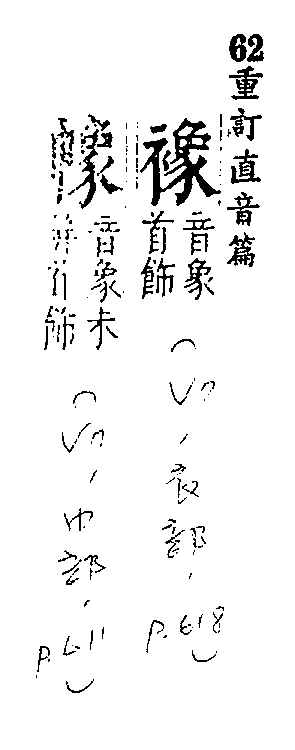 62重訂直音篇
襐
音象
首飾
(V7,衣部,P.618)
音象未
笄首飾
(V7,巾部,P.611)